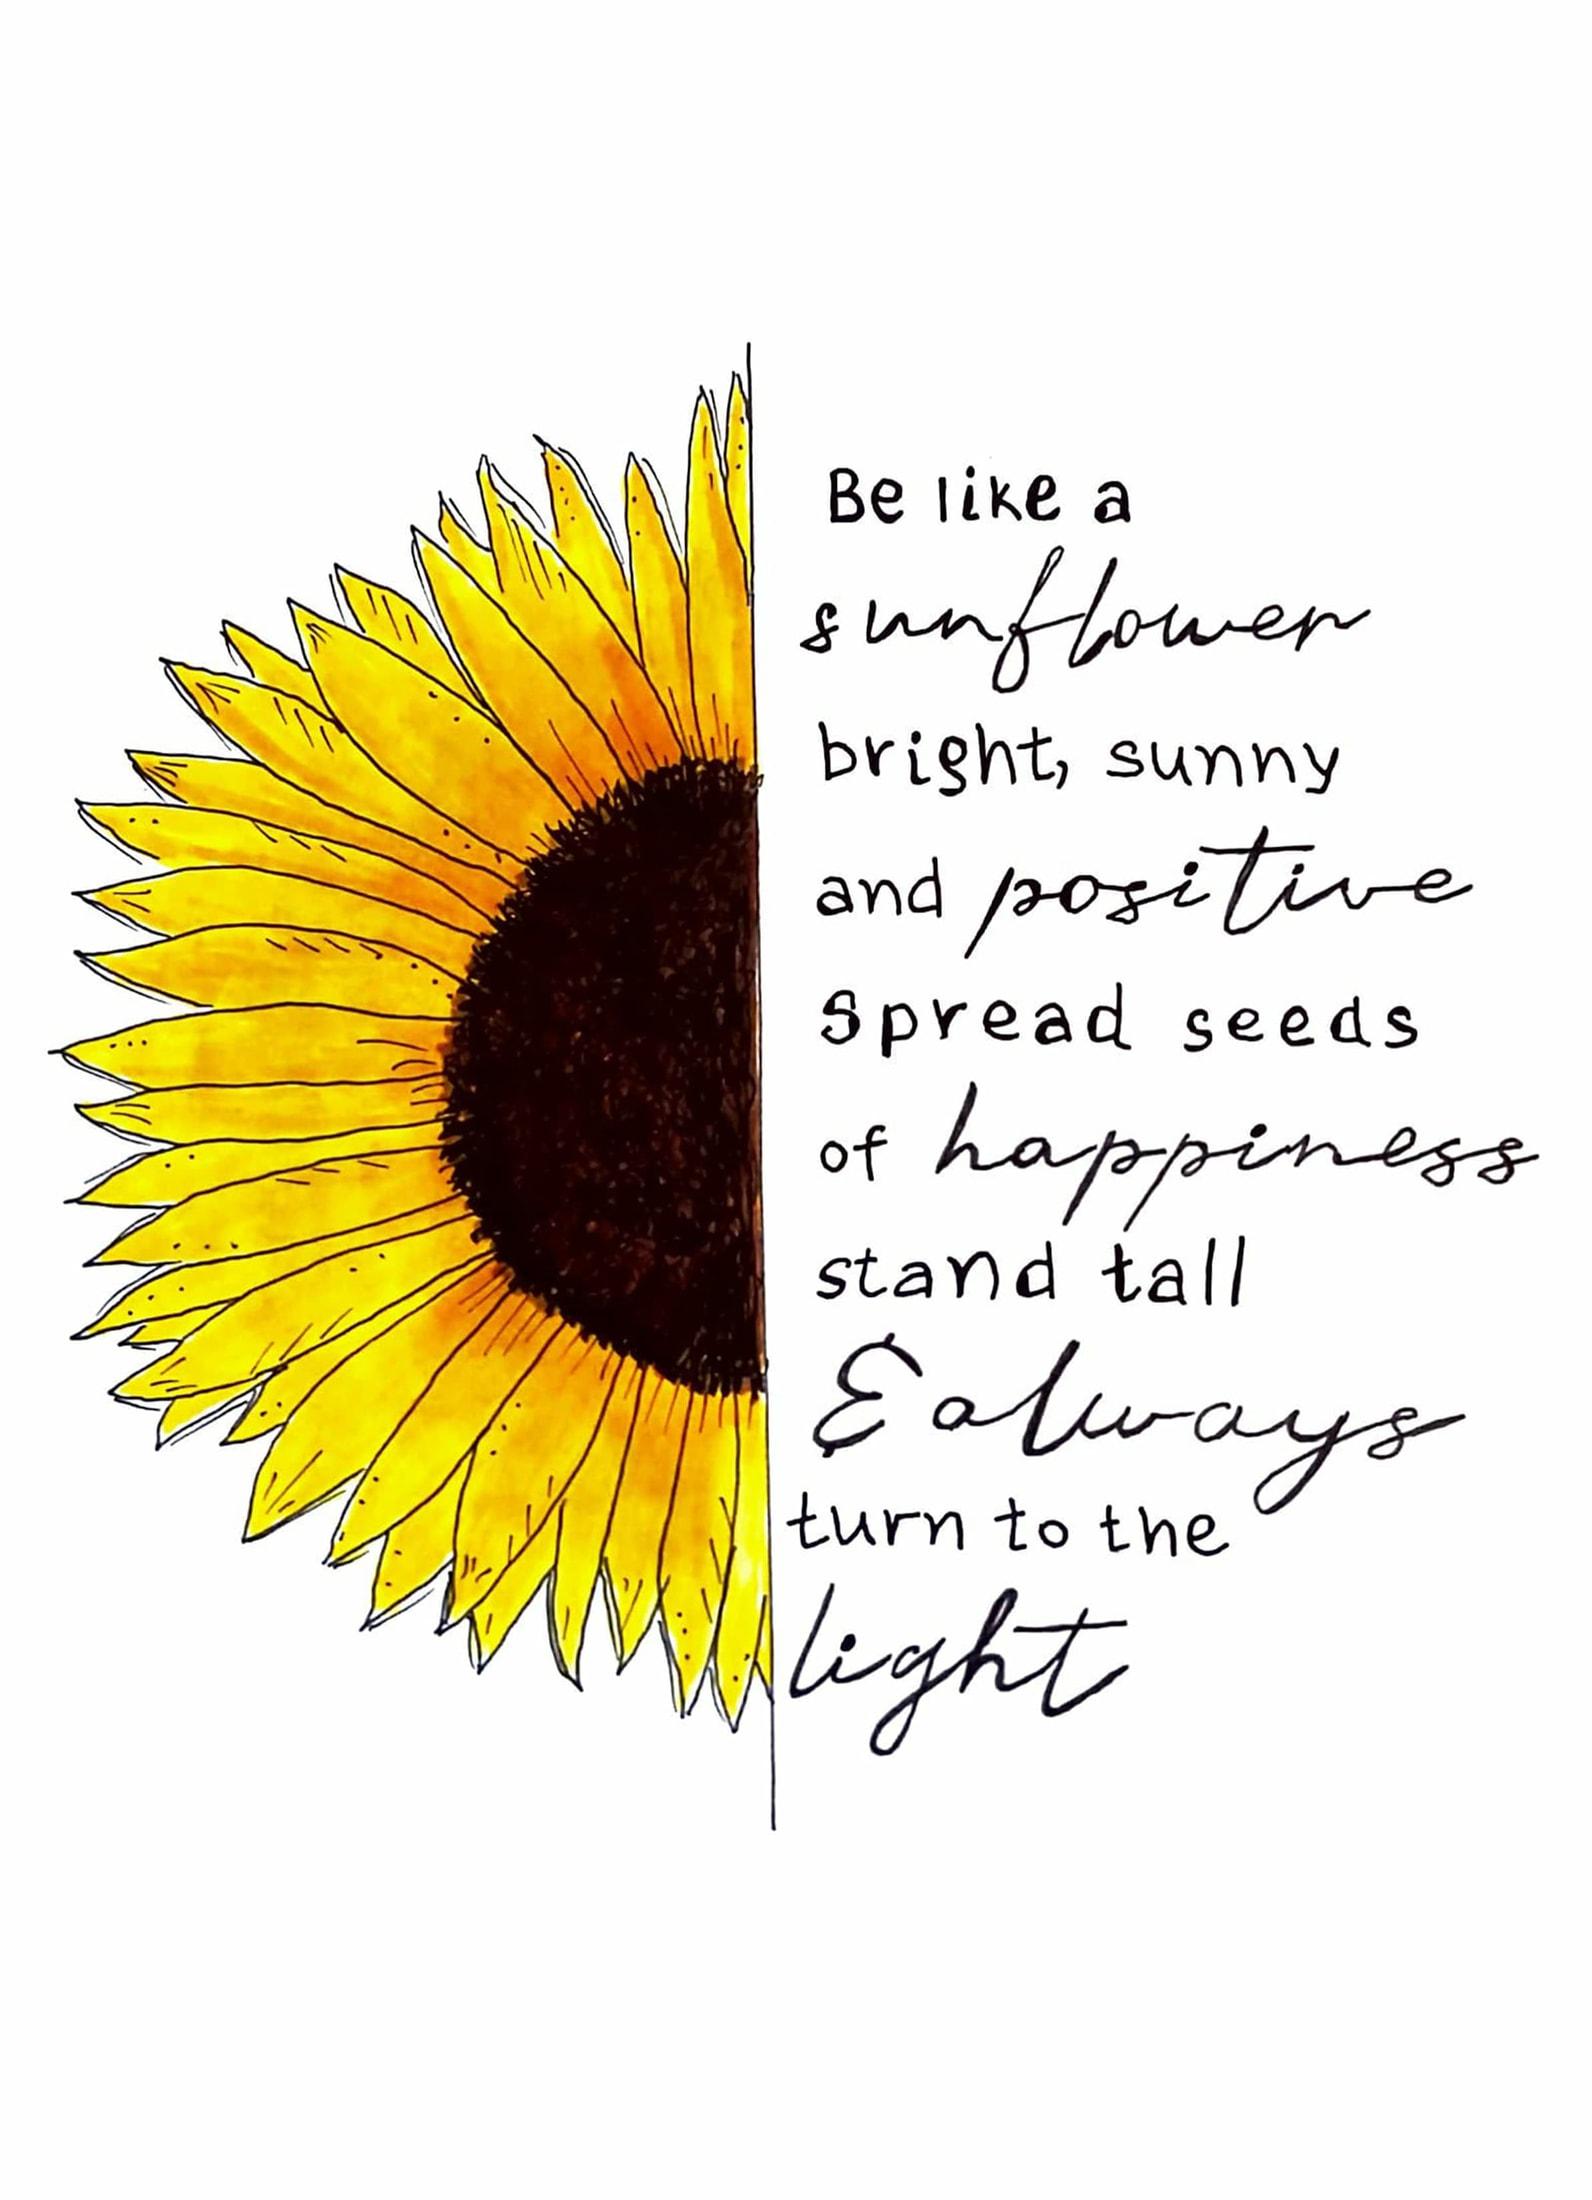 Be like a
sunflower
bright, sunny
and positive
Spread seeds
of happiness
stand tall
& always
turn to the
light